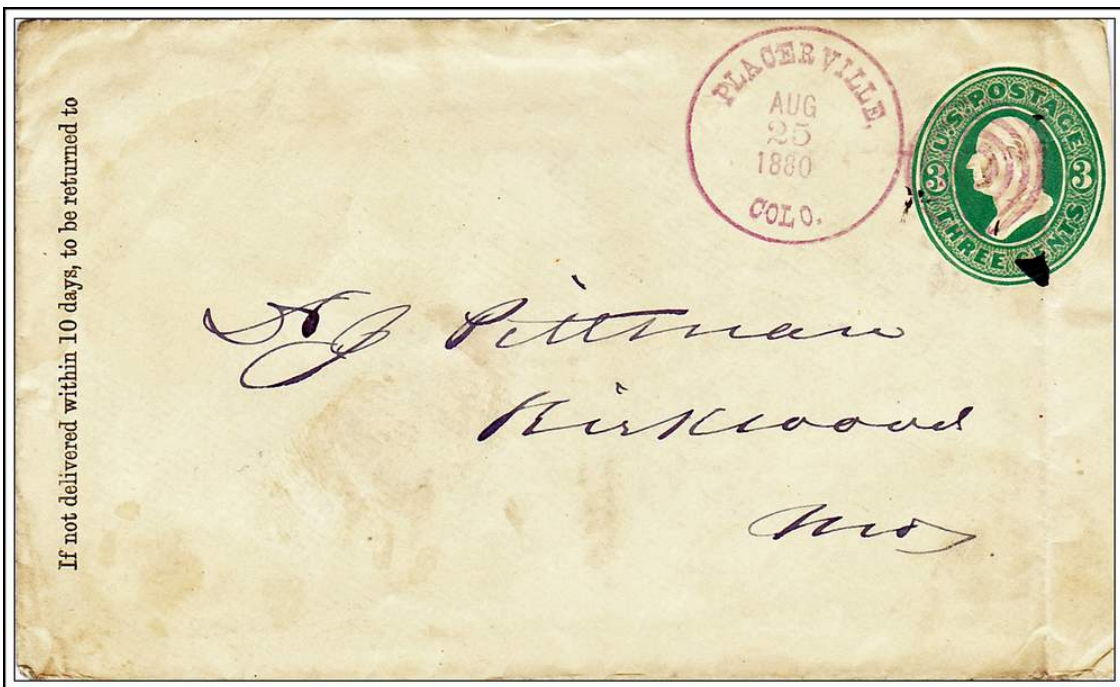 If not delivered within 10 days, to be returned to
PLACERVILLE,
AUG
25
1880
COLO.
U.S. POSTAGE
3 3
THREE CENTS
Pittman
Kirkwood
Mo